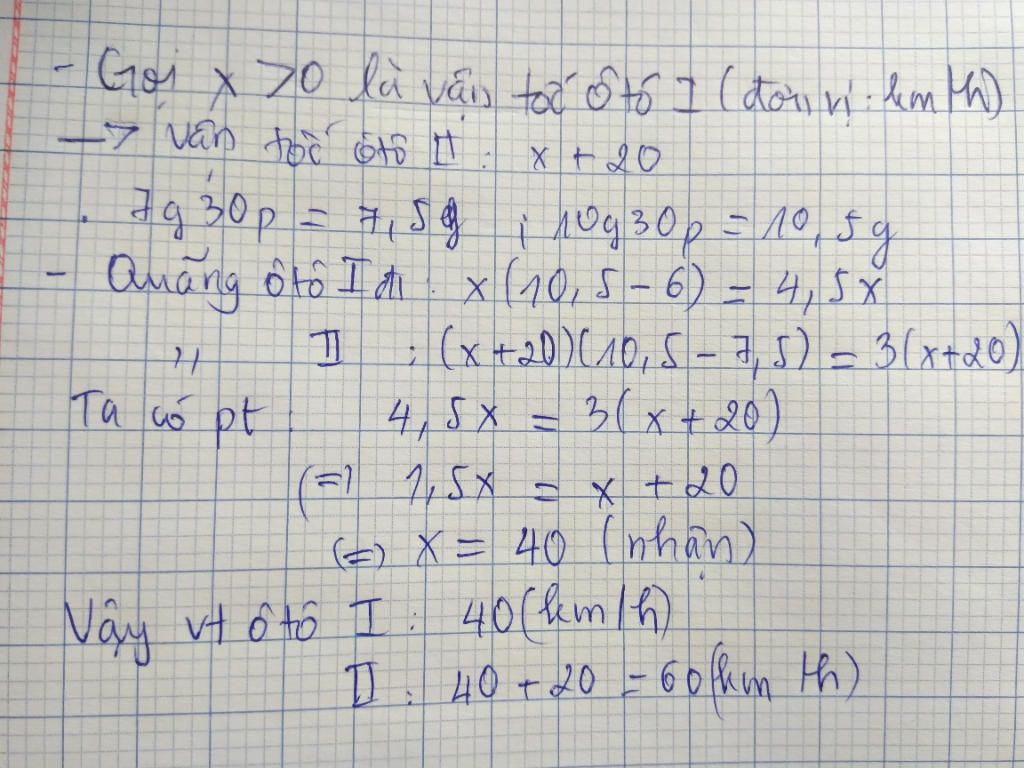 - Gọi x > 0 là vận tốc ôtô I (đơn vị: km/h)
→ vận tốc ôtô II: x + 20
. 7g30p = 7,5g ; 10g30p = 10,5g
- Quãng ôtô I đi: x(10,5 - 6) = 4,5x
,, II : (x+20)(10,5 - 7,5) = 3(x+20)
Ta có pt: 4,5x = 3(x+20)
(=) 1,5x = x + 20
(=) x = 40 (nhận)
Vậy vt ôtô I: 40(km/h)
II: 40 + 20 = 60(km/h)